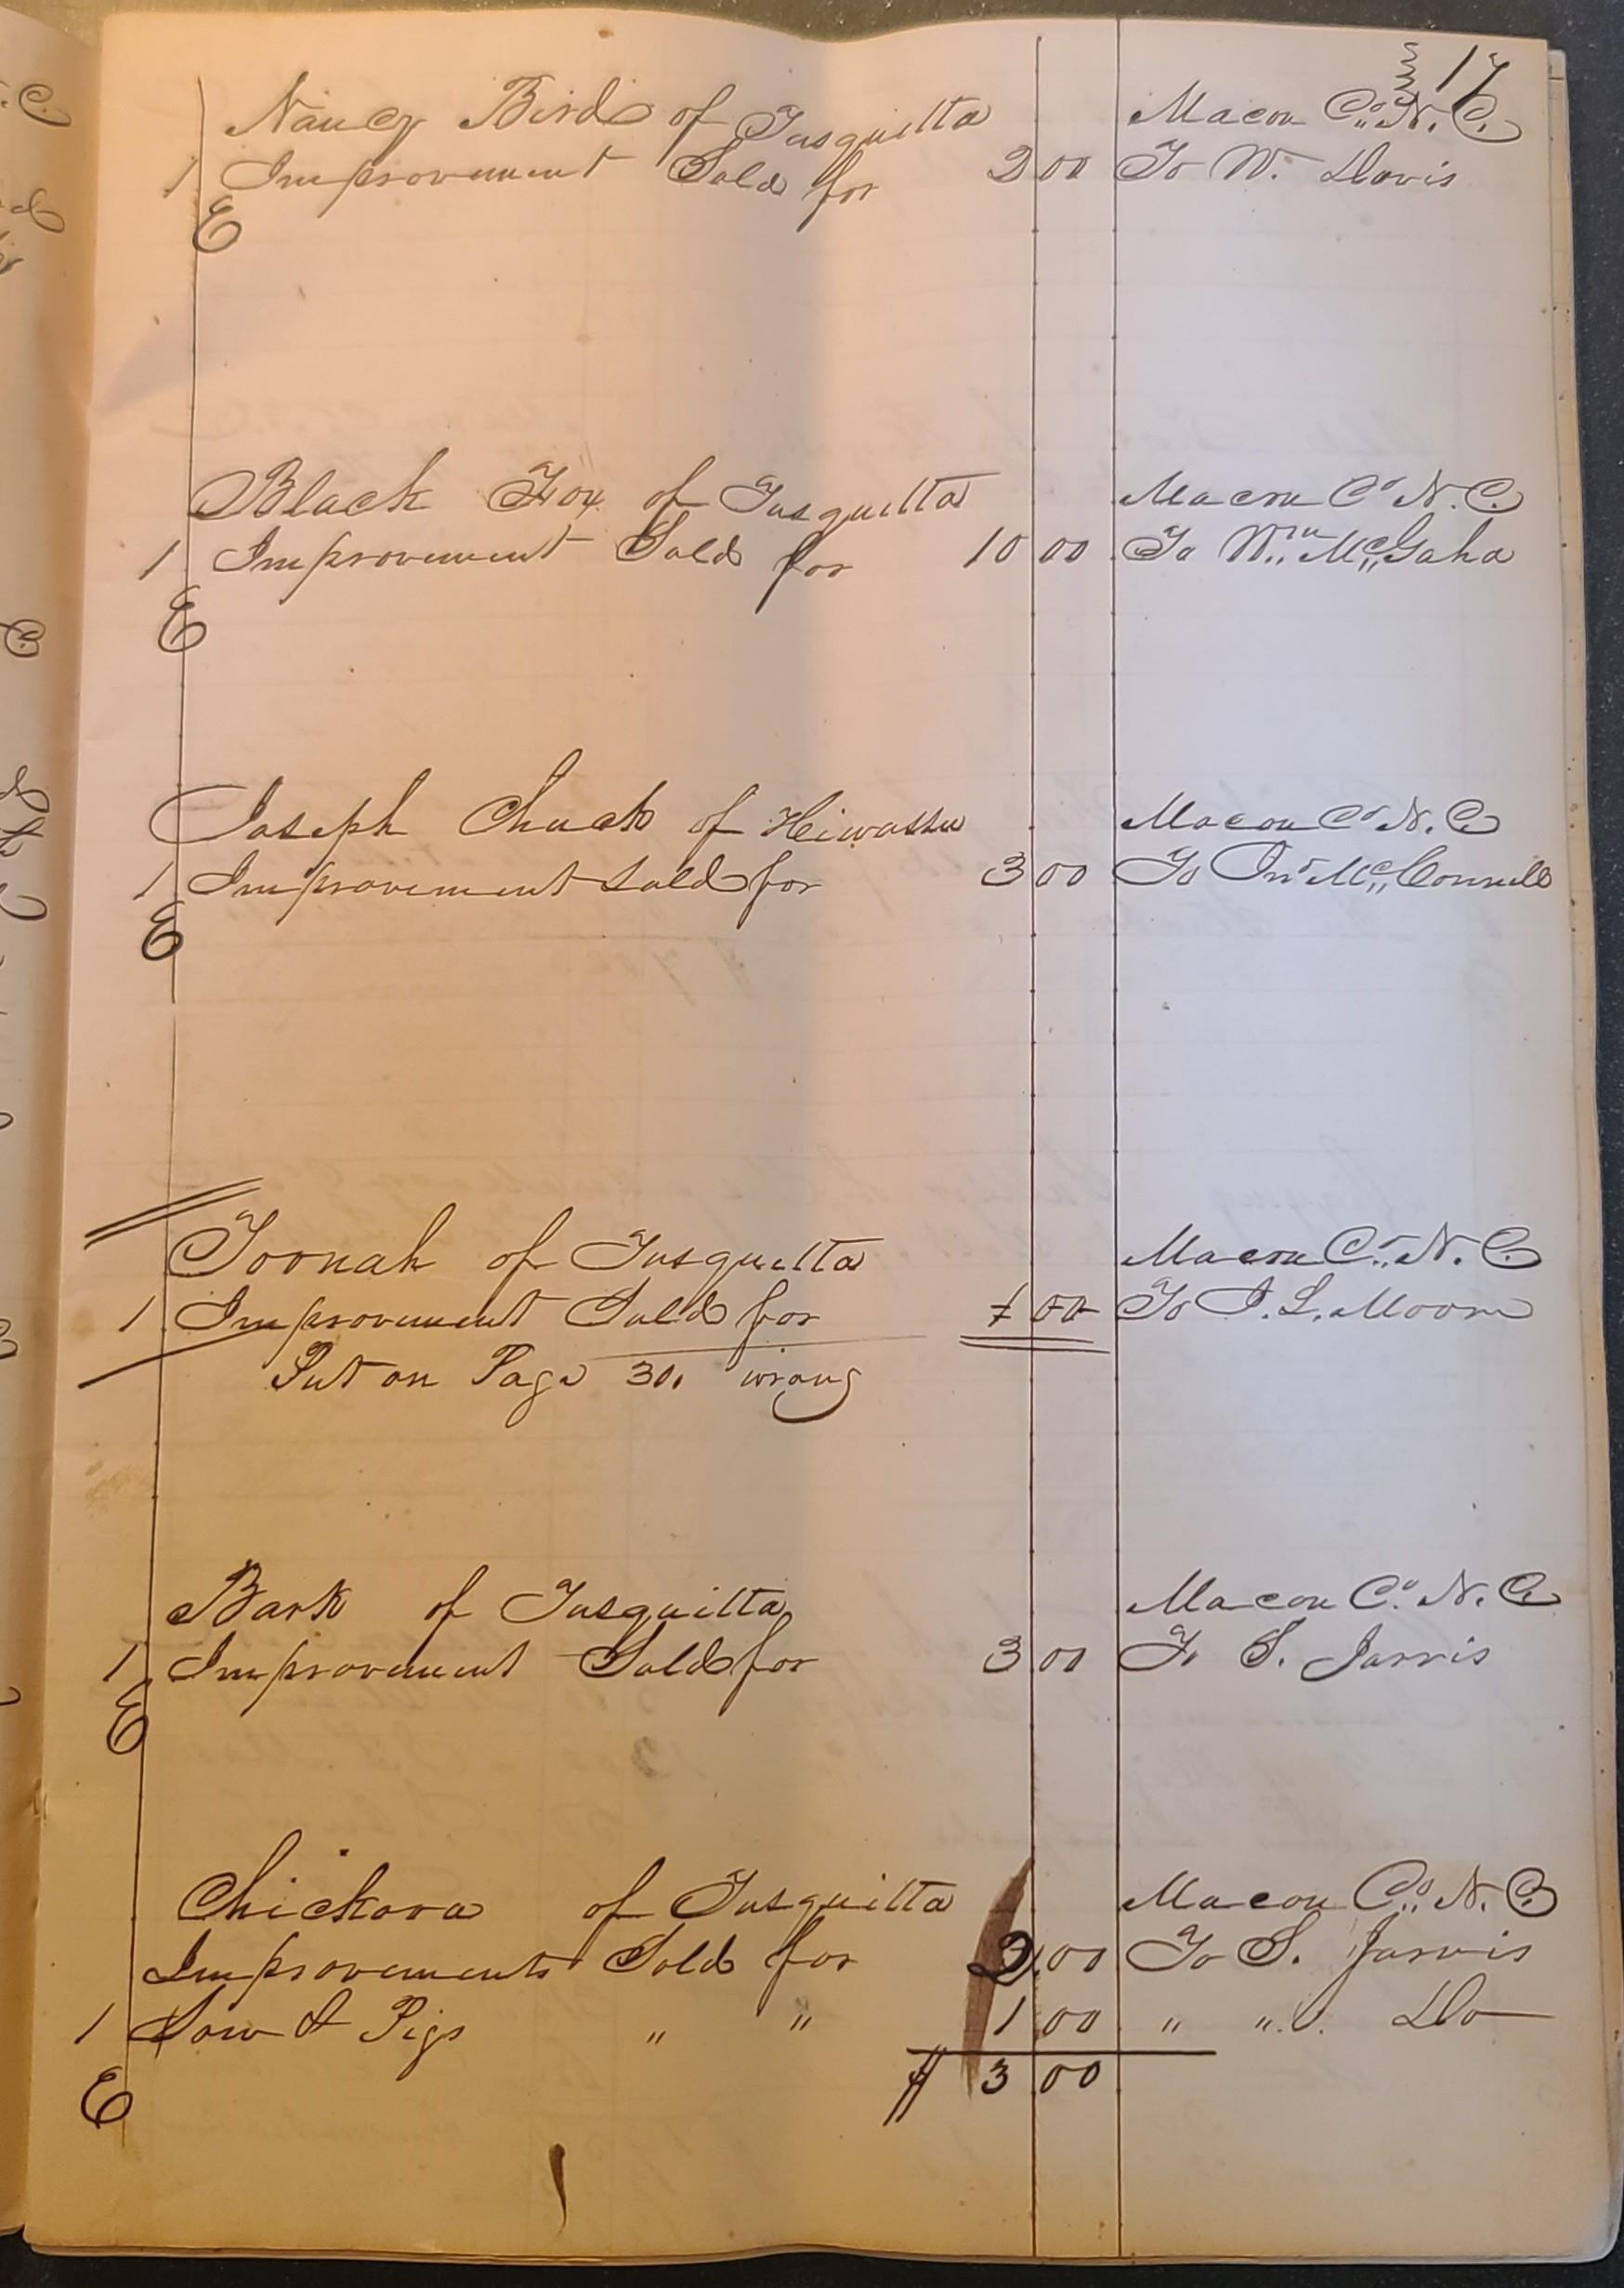 17
Nancy Bird of Tusquitta Macon Co. N. C.
1 Improvement Sold for 2 00 To W. Davis
E
Black Fox of Tusquitta Macon Co N. C.
1 Improvement Sold for 10 00 To Wm McGaha
E
Joseph Chuck of Hiwassee Macon Co N. C.
1 Improvement Sold for 3 00 To Jno McConnell
E
Toonah of Tusquitta Macon Co. N. C.
1 Improvement Sold for 1 00 To J. L. Moore
Put on Page 30. wrong
Bark of Tusquitta Macon Co. N. C.
1 Improvement Sold for 3 00 To S. Jarvis
E
Chickooa of Tusquitta Macon Co. N. C.
Improvements Sold for 2.00 To S. Jarvis
1 Sow & Pigs " " 1 00 " " Do
E $ 3 00